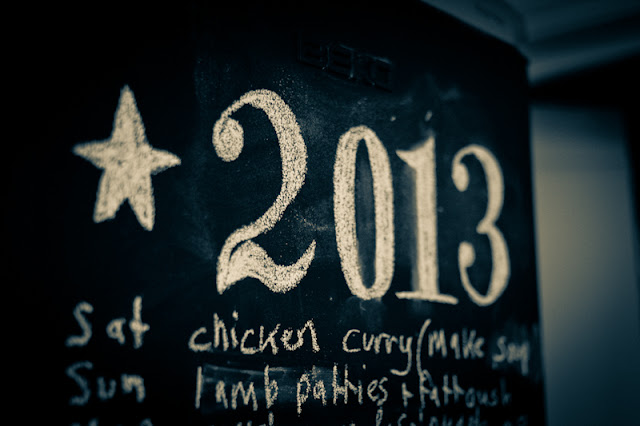 2013
Sat chicken curry (Make soup
Sun lamb patties + fattoush